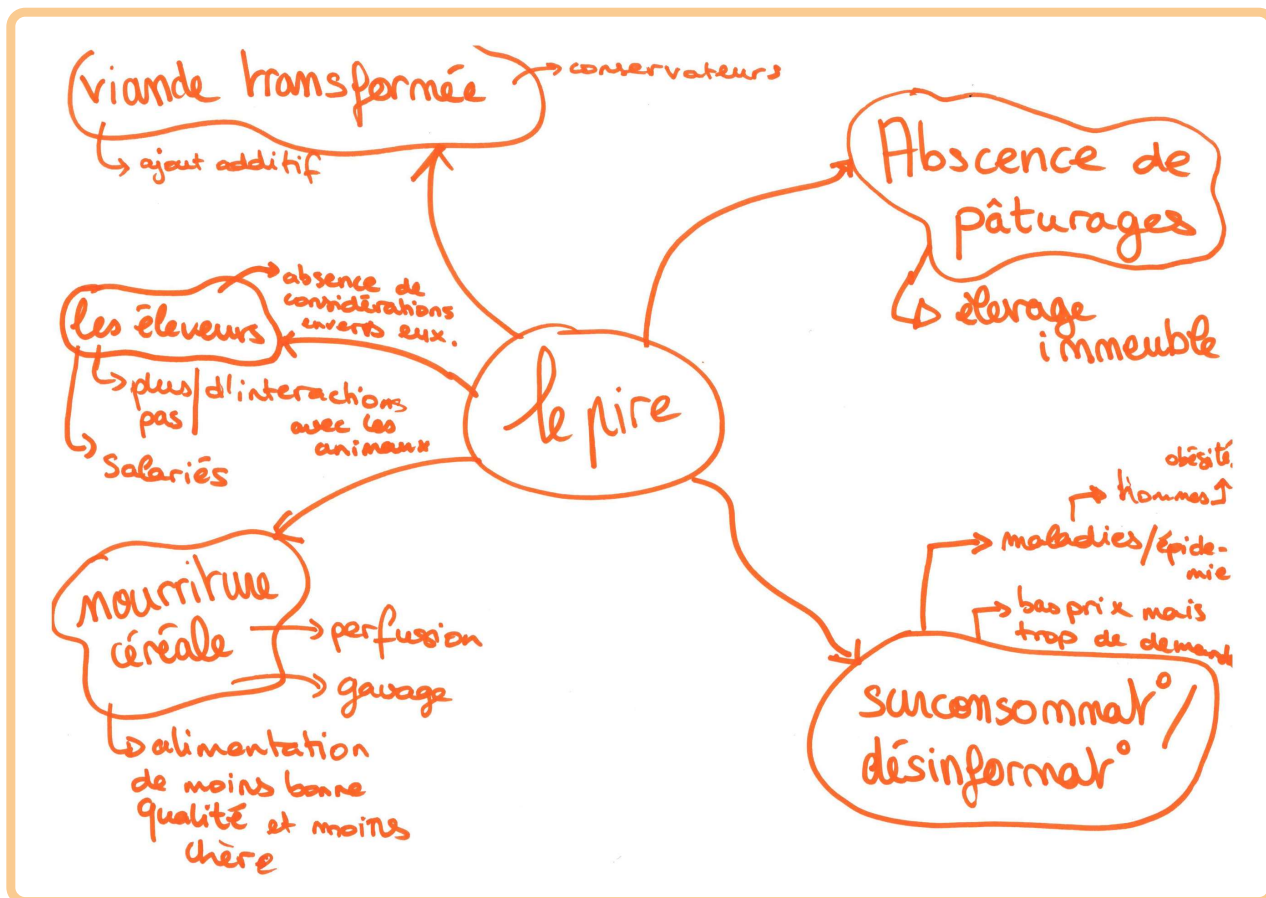 viande transformée
→ conservateurs
→ ajout additif
Abscence de
pâturages
→ élevage
immeuble
les éleveurs
→ absence de
considérations
envers eux.
→ plus/d'interactions
pas
avec les
animaux
→ Salariés
le pire
nourriture
céréale
→ perfusion
→ gavage
→ alimentation
de moins bonne
qualité et moins
chère
obésité
→ Hommes ↑
→ maladies/épidé-
mie
→ bas prix mais
trop de demande
surconsommat° /
désinformat°